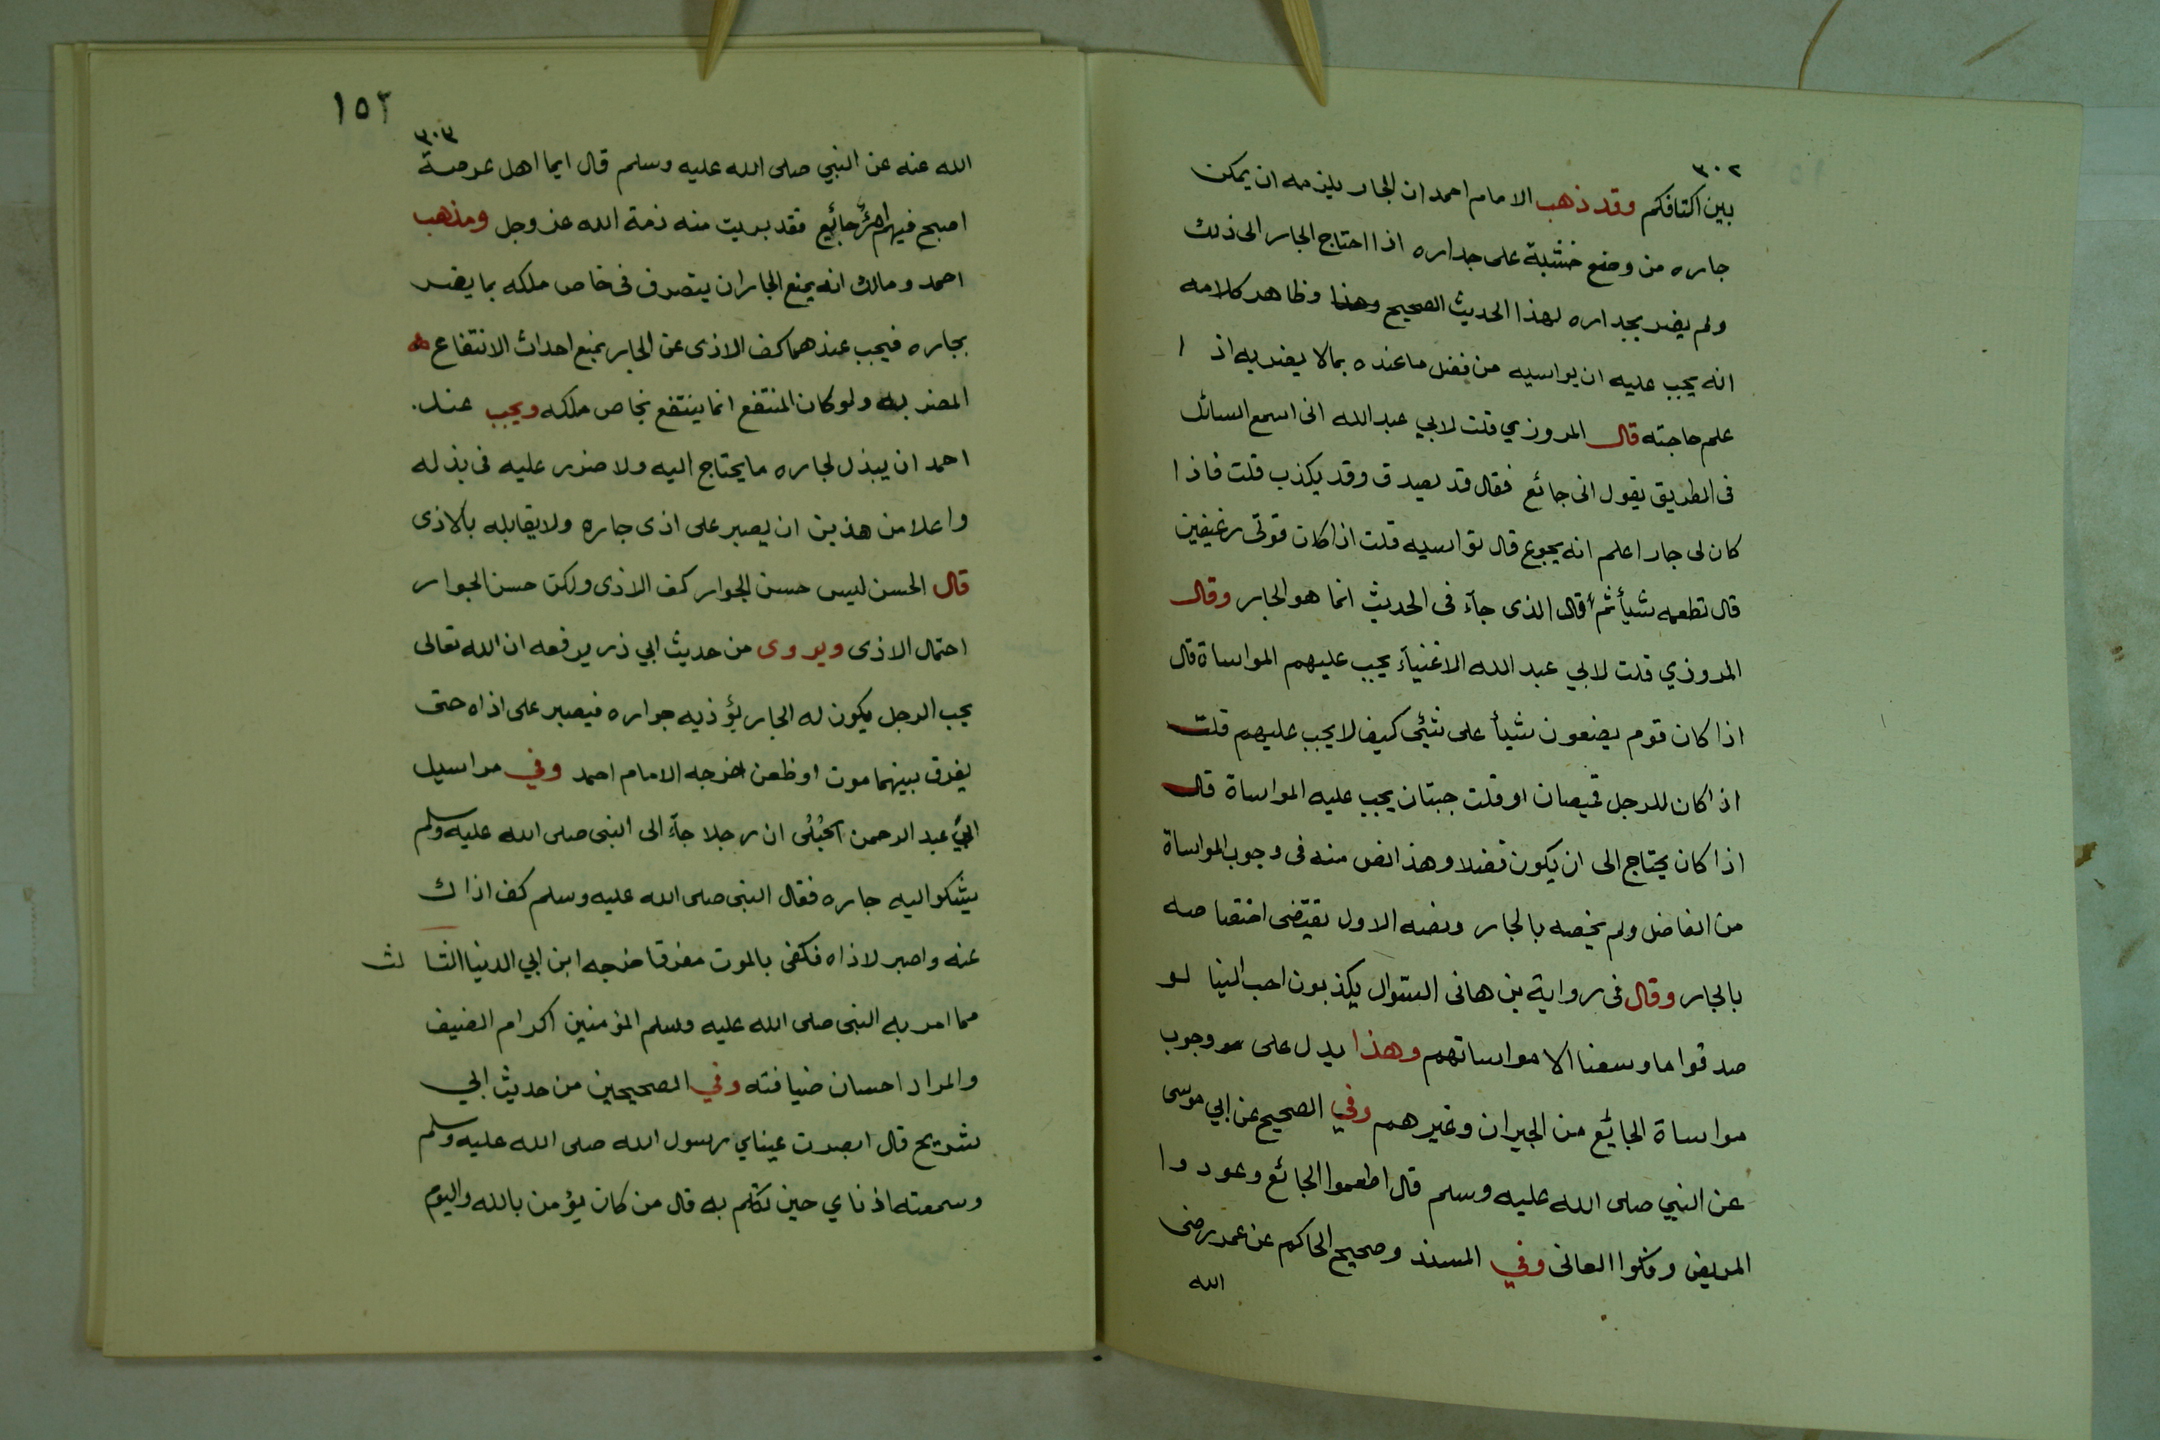 ٣٠٢
بين اكتافكم وقد ذهب الامام احمد ان الجار يلزمه ان يمكن
جاره من وضع خشبة على جداره اذا احتاج الجار الى ذلك
ولم يضر بجداره لهذا الحديث الصحيح وهذا وظاهر كلامه
انه يجب عليه ان يواسيه من فضل ما عنده بما لا يضر به اذا
علم حاجته قال المروزي قلت لابي عبد الله انى اسمع السائل
فى الطريق يقول انى جائع فقال قد يصدق وقد يكذب قلت فاذا
كان لى جار اعلم انه يجوع قال تواسيه قلت اذا كان قوتى رغيفين
قال تطعمه شيأ ثم قال الذى جآء فى الحديث انما هو الجار وقال
المروزي قلت لابي عبد الله الاغنيآء يجب عليهم المواساة قال
اذا كان قوم يضعون شيأ على شئي كيف لا يجب عليهم قلت
اذا كان للرجل قميصان او قلت جبتان يجب عليه المواساة قال
اذا كان يحتاج الى ان يكون فضلا وهذا نص منه فى وجوب المواساة
من الفاضل ولم يخصه بالجار ونصه الاول يقتضى اختصاصه
بالجار وقال فى رواية بن هانى السؤال يكذبون احب الينا لو
صدقوا ما وسعنا الا مواساتهم وهذا يدل على وجوب
مواساة الجائع من الجيران وغيرهم وفي الصحيح عن ابي موسى
عن النبي صلى الله عليه وسلم قال اطعموا الجائع وعودوا
المريض وفكوا العانى وفي المسند وصحيح الحاكم عن عمر رضى
الله
١٥٢
٣٠٣
الله عنه عن النبي صلى الله عليه وسلم قال ايما اهل عرصة
اصبح فيهم امرؤ جائع فقد بريت منه ذمة الله عز وجل ومذهب
احمد ومالك انه يمنع الجار ان يتصرف فى خاص ملكه بما يضر
بجاره فيجب عندهما كف الاذى عن الجار بمنع احداث الانتفاع
المضر به ولو كان المنتفع انما ينتفع بخاص ملكه ويجب عند
احمد ان يبذل لجاره ما يحتاج اليه ولا ضرر عليه فى بذله
واعلا من هذين ان يصبر على اذى جاره ولا يقابله بالاذى
قال الحسن ليس حسن الجوار كف الاذى ولكن حسن الجوار
احتمال الاذى ويروى من حديث ابي ذر يرفعه ان الله تعالى
يحب الرجل يكون له الجار يؤذيه جواره فيصبر على اذاه حتى
يفرق بينهما موت او ظعن اخرجه الامام احمد وفي مراسيل
ابي عبد الرحمن الحُبُلى ان رجلا جآء الى النبى صلى الله عليه وسلم
يشكوا اليه جاره فقال النبى صلى الله عليه وسلم كف اذاك
عنه واصبر لاذاه فكفى بالموت مفرقا خرجه ابن ابي الدنيا الثالث
مما امر به النبى صلى الله عليه وسلم المؤمنين اكرام الضيف
والمراد احسان ضيافته وفي الصحيحين من حديث ابي
شريح قال ابصرت عيناي رسول الله صلى الله عليه وسلم
وسمعته اذناي حين تكلم به قال من كان يؤمن بالله واليوم